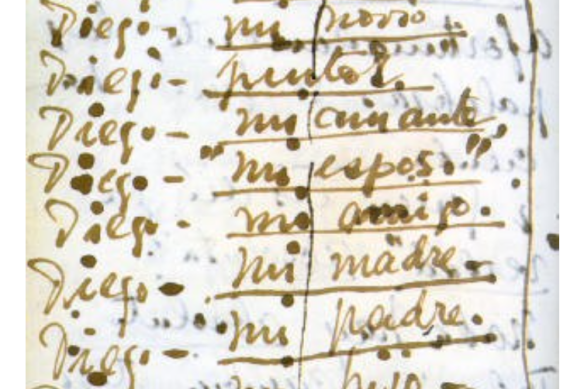 Diego - mi novio.
Diego - pintor.
Diego - mi amante
Diego - "mi esposo"
Diego - mi amigo.
Diego - mi madre -
Diego - mi padre.
mi hijo -